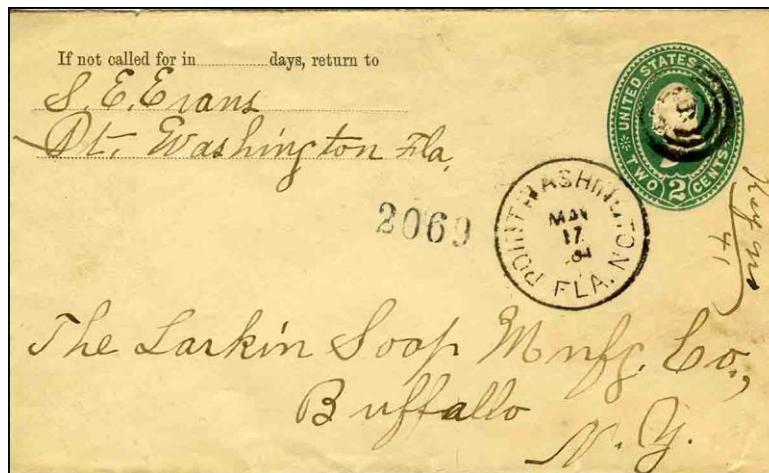 If not called for in.............days, return to
S. E. Evans
Pt. Washington Fla.
UNITED STATES
TWO 2 CENTS
2069
POINT WASHINGTON
MAY
17
FLA.
41
The Larkin Soap Mnfg. Co.,
Buffallo
N. Y.